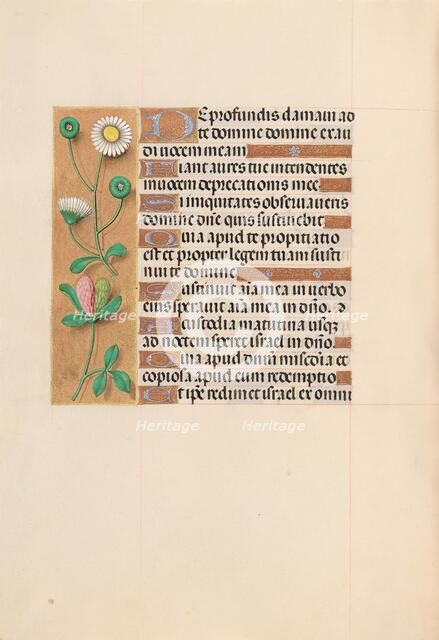 De profundis clamavi ad
te domine domine exau
di vocem meam
Fiant aures tue intendentes
in vocem deprecationis mee
Si iniquitates observaveris
domine dñe quis sustinebit
Quia apud te propitiatio
est et propter legem tuam susti
nui te domine
Sustinuit aīa mea in verbo
eius speravit aīa mea in dño. A
custodia matutina usq̢
ad noctem speret israel in dño.
Quia apud dñm misc̄dia et
copiosa apud eum redemptio
Et ipse redimet israel ex omni
Heritage
Heritage
Heritage
Heritage
Heritage
Heritage